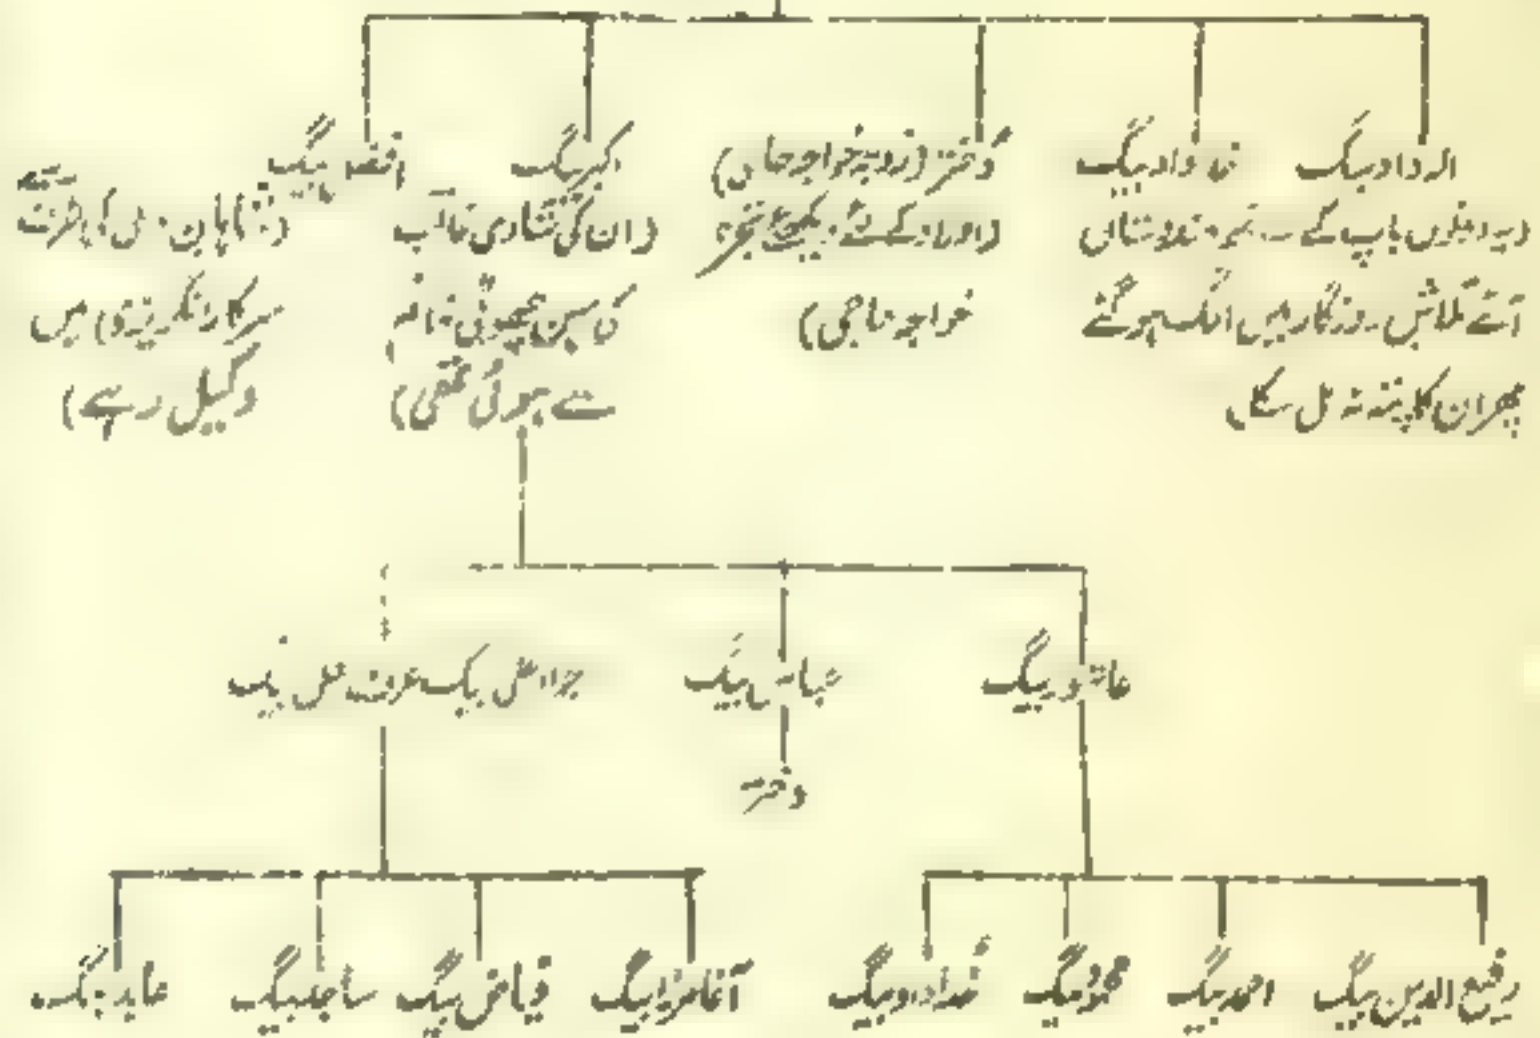 الہ داد بیگ
خدا داد بیگ
(یہ دونوں باپ کے ہندوستان
آتے تلاش روزگار میں الگ ہو گئے
پھر ان کا پتہ نہ مل سکا)
دختر (زوجہ خواجہ حاجی)
(اولاد کے لئے دیکھئے شجرہ
خواجہ حاجی)
اکبر بیگ
(ان کی شادی غالب
کی بہن چھوٹی خانم
سے ہوئی تھی)
افضل بیگ
کی طرف سے
سرکار انگریزی میں
وکیل رہے)
عاشور بیگ
عباس بیگ
جواد علی بیگ عرف علی بیگ
دختر
رفیع الدین بیگ
احمد بیگ
محمود بیگ
خداداد بیگ
آغا مرزا بیگ
فیاض بیگ
ساجد بیگ
عابد بیگ